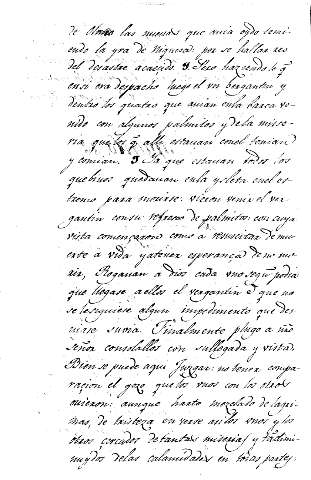 de Olano las nuevas que avia oydo temi-
endo la yra de Niquesa por se hallar reo
del desastre acaeçido. Pero haziendo lo q
en si era despacho luego el un bergantin y
dentro los quatro que avian en la barca ve-
nido con algunos palmitos y de la mise-
ria que los q alli estavan tenian
y comian. Ya que estavan todos los
que bivos quedavan en la ysleta en el es-
tremo para morirse: vieron venir el ver-
gantin con su refresco de palmitos con cuya
vista començaron como a resuscitar de mu-
erte a vida y a tener esperança de no mo-
rir, Rogavan a Dios cada uno segun podia
que llegase a ellos el vergantin e que no
se le siguiese algun impedimento que des-
viase su via. Finalmente plugo a nro
Señor consolallos con su llegada y vista.
Bien se puede aqui Juzgar no tener compa-
racion el gozo que los unos con los otros
ovieron: aunque harto mezclado de lagri-
mas, de tristeza en verse asi los unos y los
otros cercados de tantas miserias y tan dimi-
nuydos de las calamidades en todas partes.